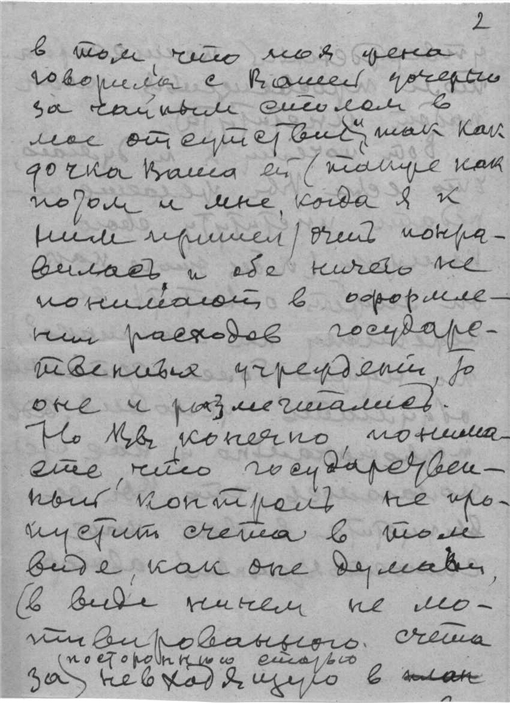 2
в том что моя жена
говорила с Вашей дочерью
за чайным столом в
мое отсутствий, так как
дочка Ваша ей (также как
потом и мне, когда я к
ним пришел) очень понра-
вилась и обе ничего не
понимают в оформле-
нии расходов государс-
твенных учреждений, то
оне и размечтались.
Но Вы, конечно, понима-
ете, что государствен-
ный контроль не про-
пустит счета в том
виде, как оне думали,
(в виде ничем не мо-
тивированного счета
за постороннюю статью
невходящую в план